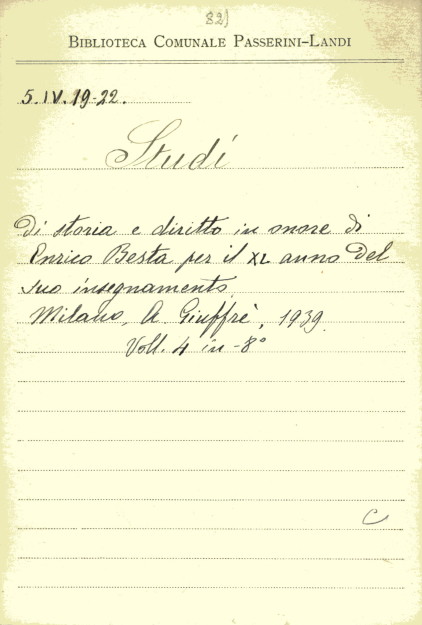 82)
BIBLIOTECA COMUNALE PASSERINI-LANDI
5.IV.19-22.
Studi
Di storia e diritto in onore di
Enrico Besta per il XL anno del
suo insegnamento
Milano, A. Giuffrè, 1939.
Voll. 4 in-8°
C